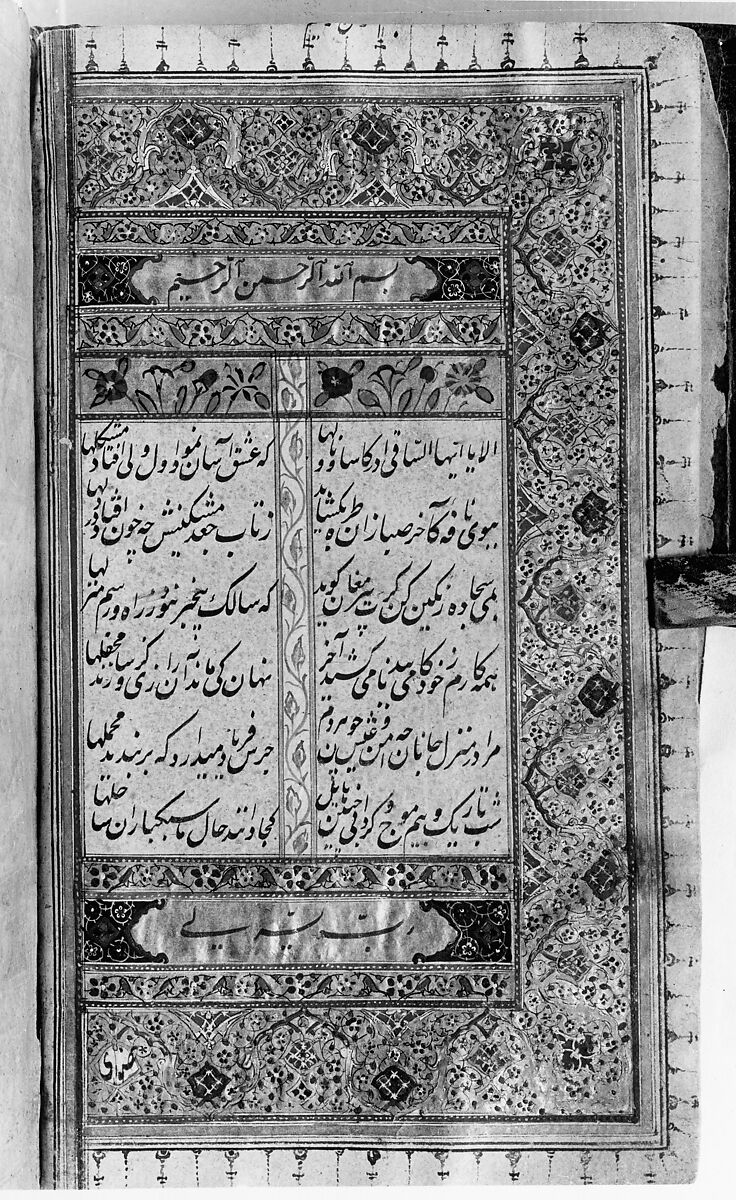 بسم الله الرحمن الرحیم
الا یا ایها الساقی ادر کاسا وناولها که عشق آسان نمود اول ولی افتاد مشکلها
ببوی نافه کآخر صبا زان طره بکشاید ز تاب جعد مشکینش چه خون افتاد در دلها
بمی سجاده رنکین کن کرت پیر مغان کوید که سالک بیخبر نبود ز راه و رسم منزلها
همه کارم ز خود کامی ببدنامی کشید آخر نهان کی ماند آن رازی کزو سازند محفلها
مرا در منزل جانان چه امن و عیش چون هر دم جرس فریاد میدارد که بربندید محملها
شب تاریک و بیم موج و کردابی چنین هایل کجا دانند حال ما سبکباران ساحلها